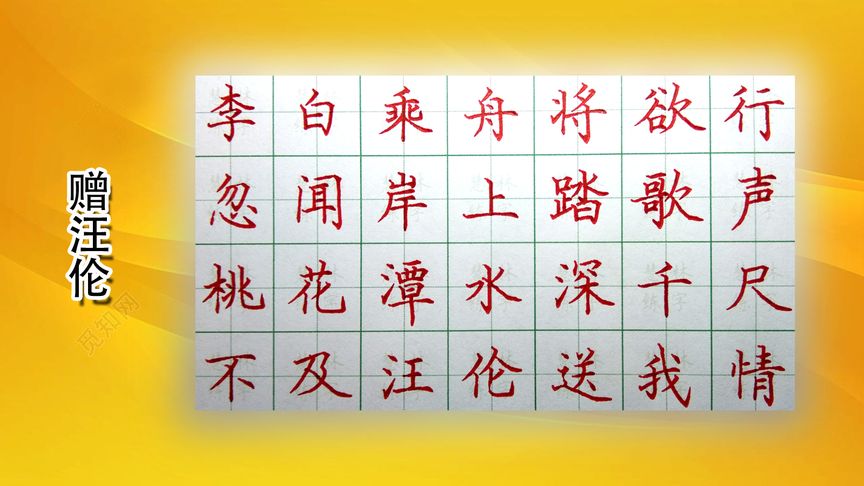 赠汪伦
李白乘舟将欲行
忽闻岸上踏歌声
桃花潭水深千尺
不及汪伦送我情
觅知网